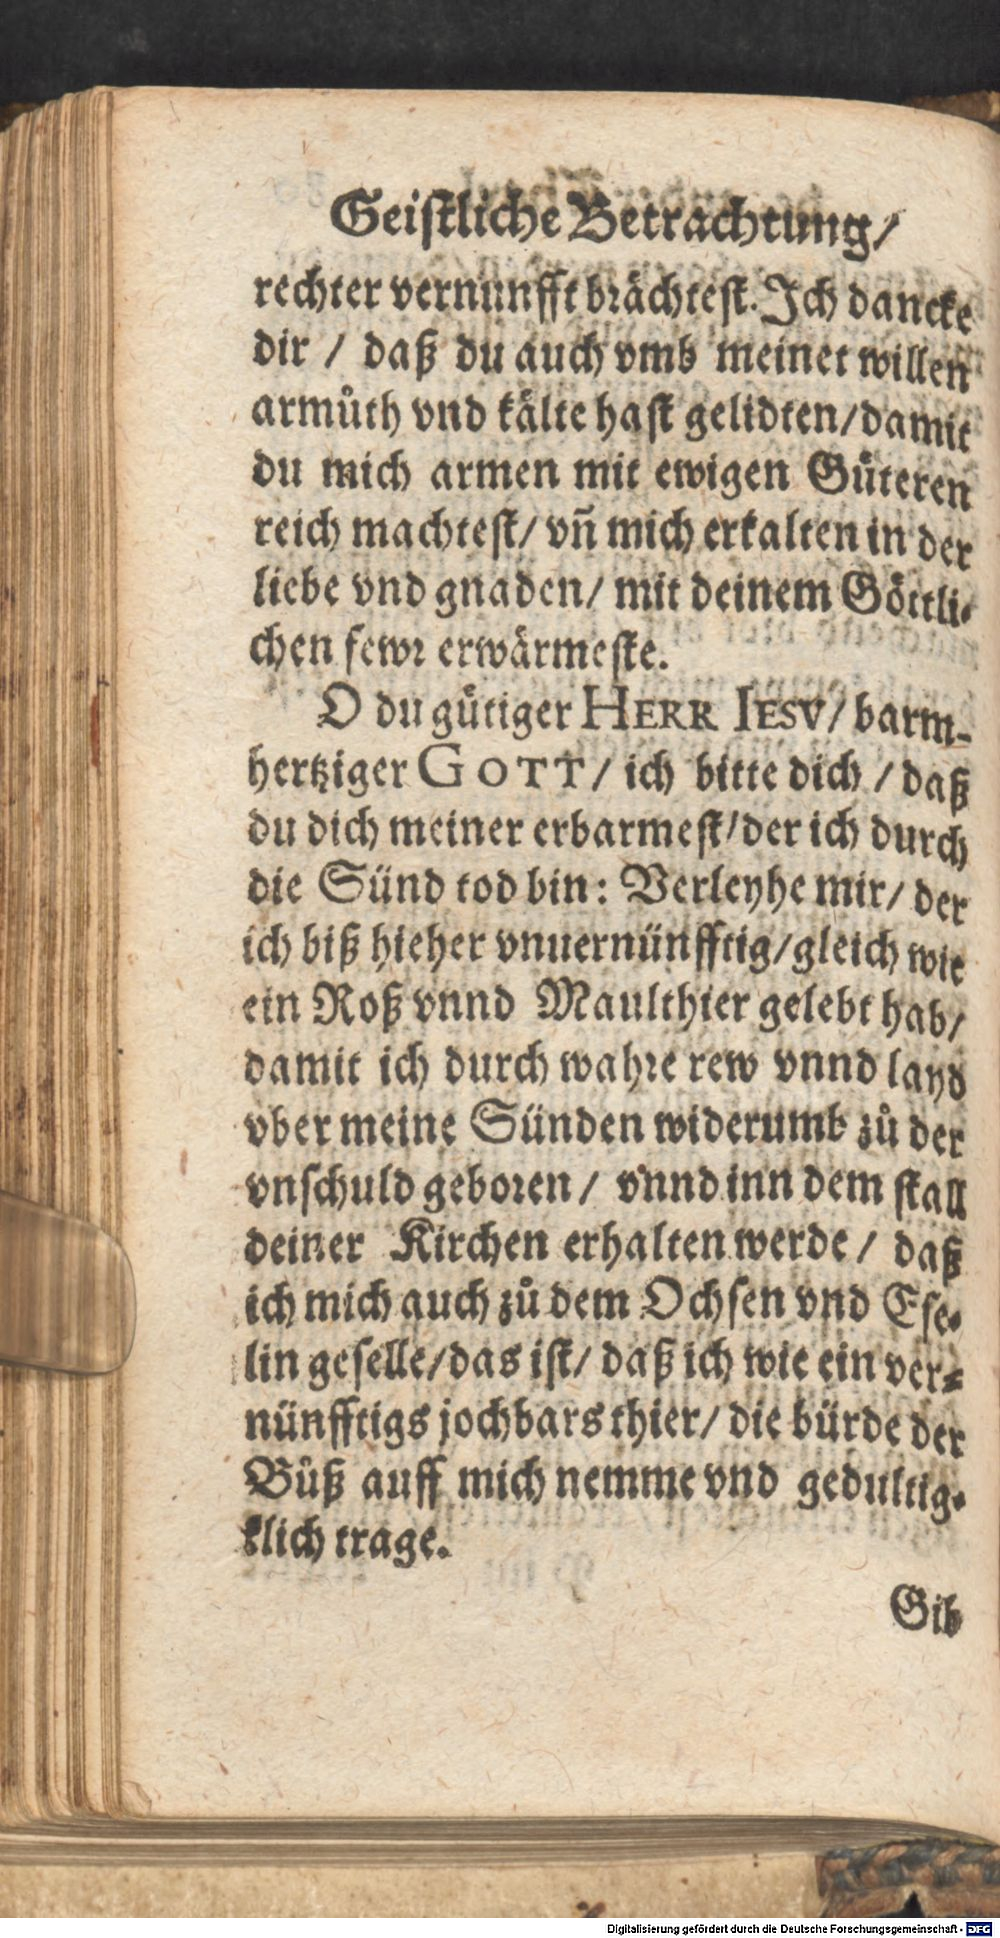 Geistliche Betrachtung/
rechter vernunfft brächtest. Ich dancke
dir / daß du auch vmb meinet willen
armůth vnd kälte hast gelidten/damit
du mich armen mit ewigen Gůteren
reich machtest/ vñ mich erkalten in der
liebe vnd gnaden/ mit deinem Göttli-
chen fewr erwärmeste.
O du gůtiger HERR IESV/ barm-
hertziger GOTT/ ich bitte dich / daß
du dich meiner erbarmest/der ich durch
die Sünd tod bin: Verleyhe mir/ der
ich biß hieher vnuernünfftig/gleich wie
ein Roß vnnd Maulthier gelebt hab/
damit ich durch wahre rew vnnd layd
vber meine Sünden widerumb zů der
vnschuld geboren/ vnnd inn dem stall
deiner Kirchen erhalten werde/ daß
ich mich auch zů dem Ochsen vnd Ese-
lin geselle/das ist/ daß ich wie ein ver-
nünfftigs jochbars thier/ die bürde der
Bůß auff mich nemme vnd gedultig-
klich trage.
Gib
Digitalisierung gefördert durch die Deutsche Forschungsgemeinschaft - DFG